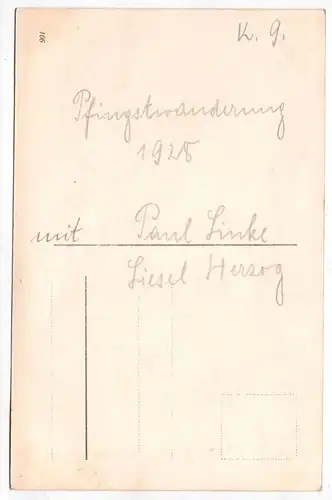 106
K. g.
Pfingstwanderung
1925
mit Paul Linke
Liesel Herzog